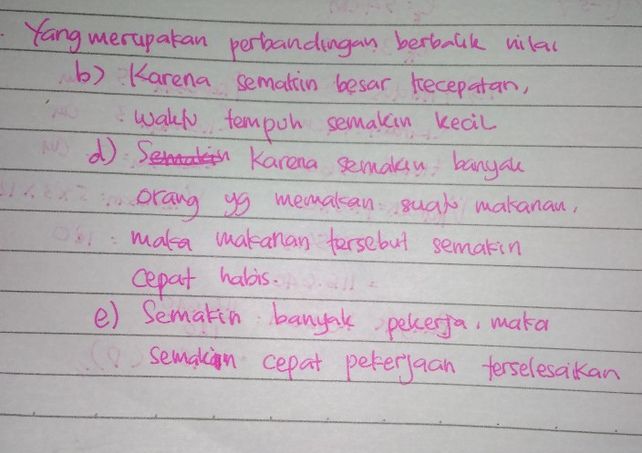 Yang merupakan perbandingan berbalik nilai
b) Karena semakin besar kecepatan,
waktu tempuh semakin kecil
d) Semakin Karena semakin banyak
orang yg memakan suatu makanan,
maka makanan tersebut semakin
cepat habis.
e) Semakin banyak pekerja, maka
semakin cepat pekerjaan terselesaikan